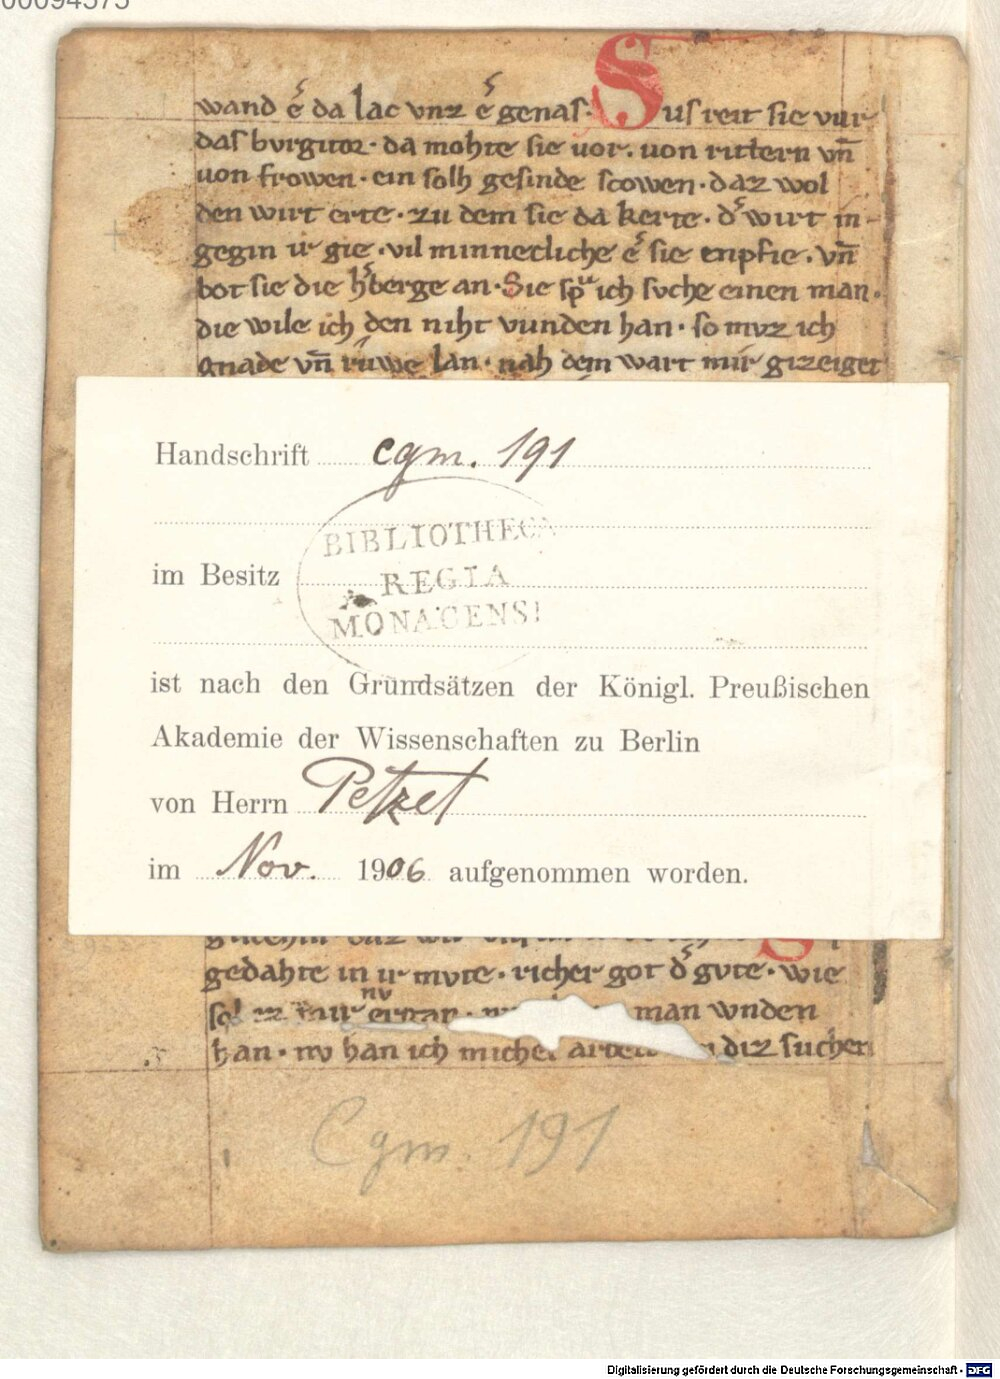 00094575
wand e᷎ da lac vnz e᷎ genas· Sus reit sie vur
das burgitor· da mohte sie vor. uon rittern vn̄
uon frowen· ein solh gesinde scowen· daz wol
den wirt erte· zu dem sie da kerte· d᷎ wirt in-
gegin ir gie· vil minnecliche e᷎ sie enpfie. vn̄
bot sie die h᷎berge an· Sie spͧ ich svche einen man·
die wile ich den niht vunden han· so mvz ich
gnade vn̄ ruwe lan· nah dem wart mir gizeiget
Handschrift cgm. 191
BIBLIOTHECA
im Besitz REGIA
MONACENSI
ist nach den Grundsätzen der Königl. Preußischen
Akademie der Wissenschaften zu Berlin
von Herrn Petzet
im Nov. 1906 aufgenommen worden.
gedahte in ir mvte· richer got d᷎ gvte· wie
nv
sol mir man wnden
han· nv han ich michel diz suchen
Cgm. 191
Digitalisierung gefördert durch die Deutsche Forschungsgemeinschaft - DFG